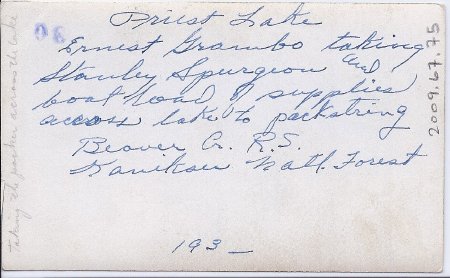 Priest Lake
Ernest Grambo taking
Stanley Spurgeon and
boat load, supplies
across lake to packstring
Beaver Cr. R.S.
Kaniksu Natl. Forest
193_
2009.67.75
Taking the packer across the lake